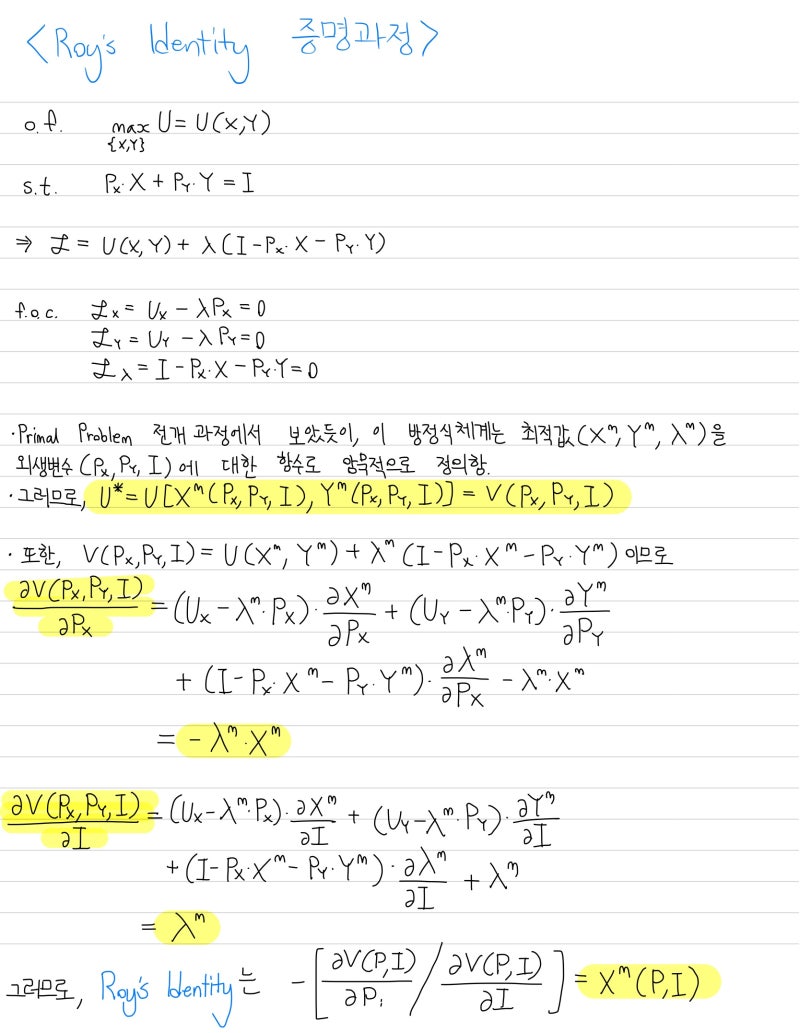 <Roy's Identity 증명과정>
o.f. max U = U(X,Y)
{X,Y}
s.t. Pₓ·X + Pᵧ·Y = I
⇒ ℒ = U(X,Y) + λ(I-Pₓ·X - Pᵧ·Y)
f.o.c. ℒₓ = Uₓ - λPₓ = 0
ℒᵧ = Uᵧ - λPᵧ = 0
ℒ_λ = I - Pₓ·X - Pᵧ·Y = 0
·Primal Problem 전개 과정에서 보았듯이, 이 방정식체계는 최적값(Xᵐ, Yᵐ, λᵐ)을
외생변수 (Pₓ, Pᵧ, I)에 대한 함수로 암묵적으로 정의함.
·그러므로, U* = U[Xᵐ(Pₓ, Pᵧ, I), Yᵐ(Pₓ, Pᵧ, I)] = V(Pₓ, Pᵧ, I)
·또한, V(Pₓ, Pᵧ, I) = U(Xᵐ, Yᵐ) + λᵐ(I-Pₓ·Xᵐ-Pᵧ·Yᵐ)이므로
∂V(Pₓ, Pᵧ, I)/∂Pₓ = (Uₓ - λᵐ·Pₓ)·∂Xᵐ/∂Pₓ + (Uᵧ - λᵐPᵧ)·∂Yᵐ/∂Pᵧ
+ (I-Pₓ·Xᵐ - Pᵧ·Yᵐ)·∂λᵐ/∂Pₓ - λᵐ·Xᵐ
= -λᵐ·Xᵐ
∂V(Pₓ, Pᵧ, I)/∂I = (Uₓ-λᵐ·Pₓ)·∂Xᵐ/∂I + (Uᵧ-λᵐ·Pᵧ)·∂Yᵐ/∂I
+ (I-Pₓ·Xᵐ - Pᵧ·Yᵐ)·∂λᵐ/∂I + λᵐ
= λᵐ
그러므로, Roy's Identity는 -[∂V(P,I)/∂Pᵢ / ∂V(P,I)/∂I] = Xᵐ(P,I)